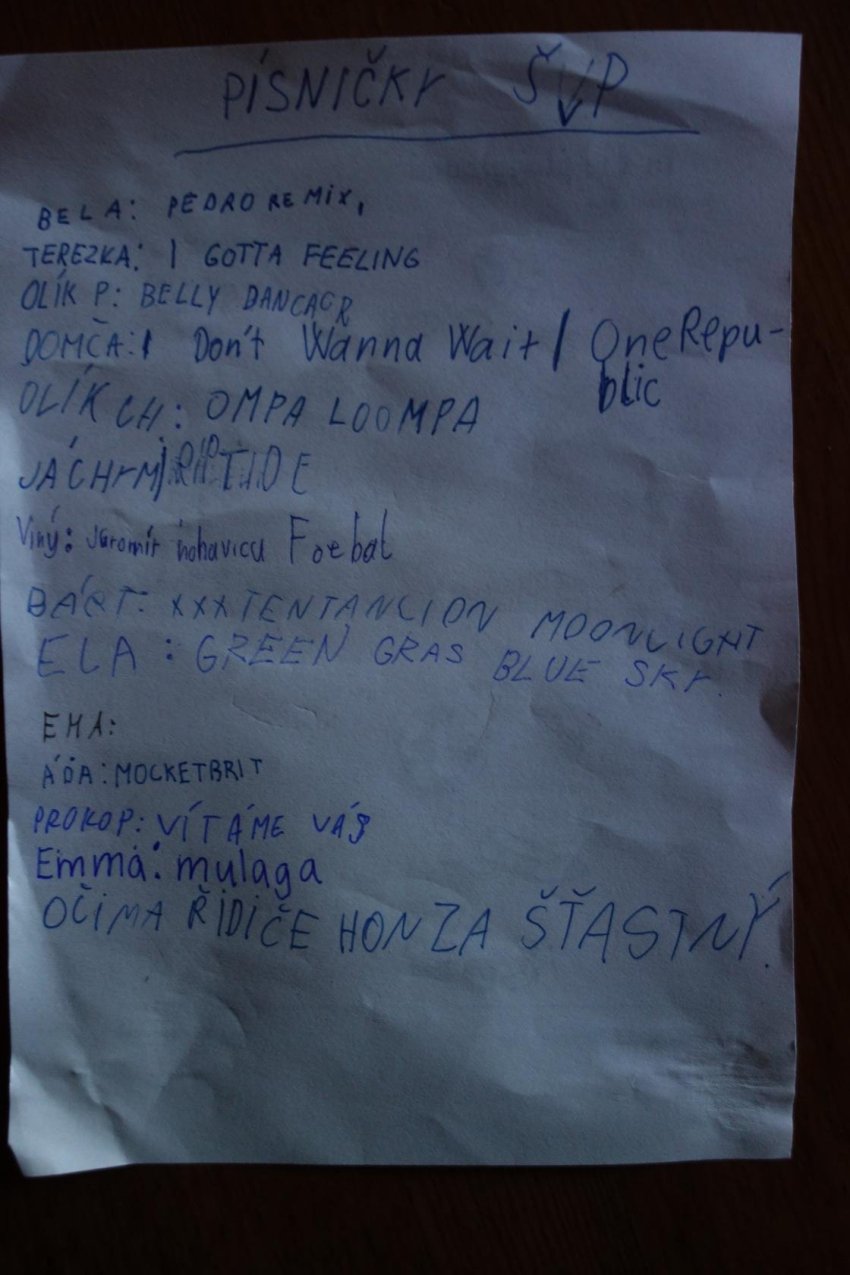 PÍSNIČKY ŠVP
BELA: PEDRO REMIX,
TEREZKA: I GOTTA FEELING
OLÍK P: BELLY DANCACR
DOMČA: I Don't Wanna Wait / OneRepu-
blic
OLÍK CH: OMPA LOOMPA
JÁCHYM: RIPTIDE
Viný: Jaromír nohavica Foebal
BÁRT: XXXTENTANCION MOONLIGHT
ELA: GREEN GRAS BLUE SKY.
EMA:
ÁĎA: MOCKETBRIT
PROKOP: VÍTÁME VÁS
Emma: mulaga
OČIMA ŘIDIČE HONZA ŠŤASTNÝ.